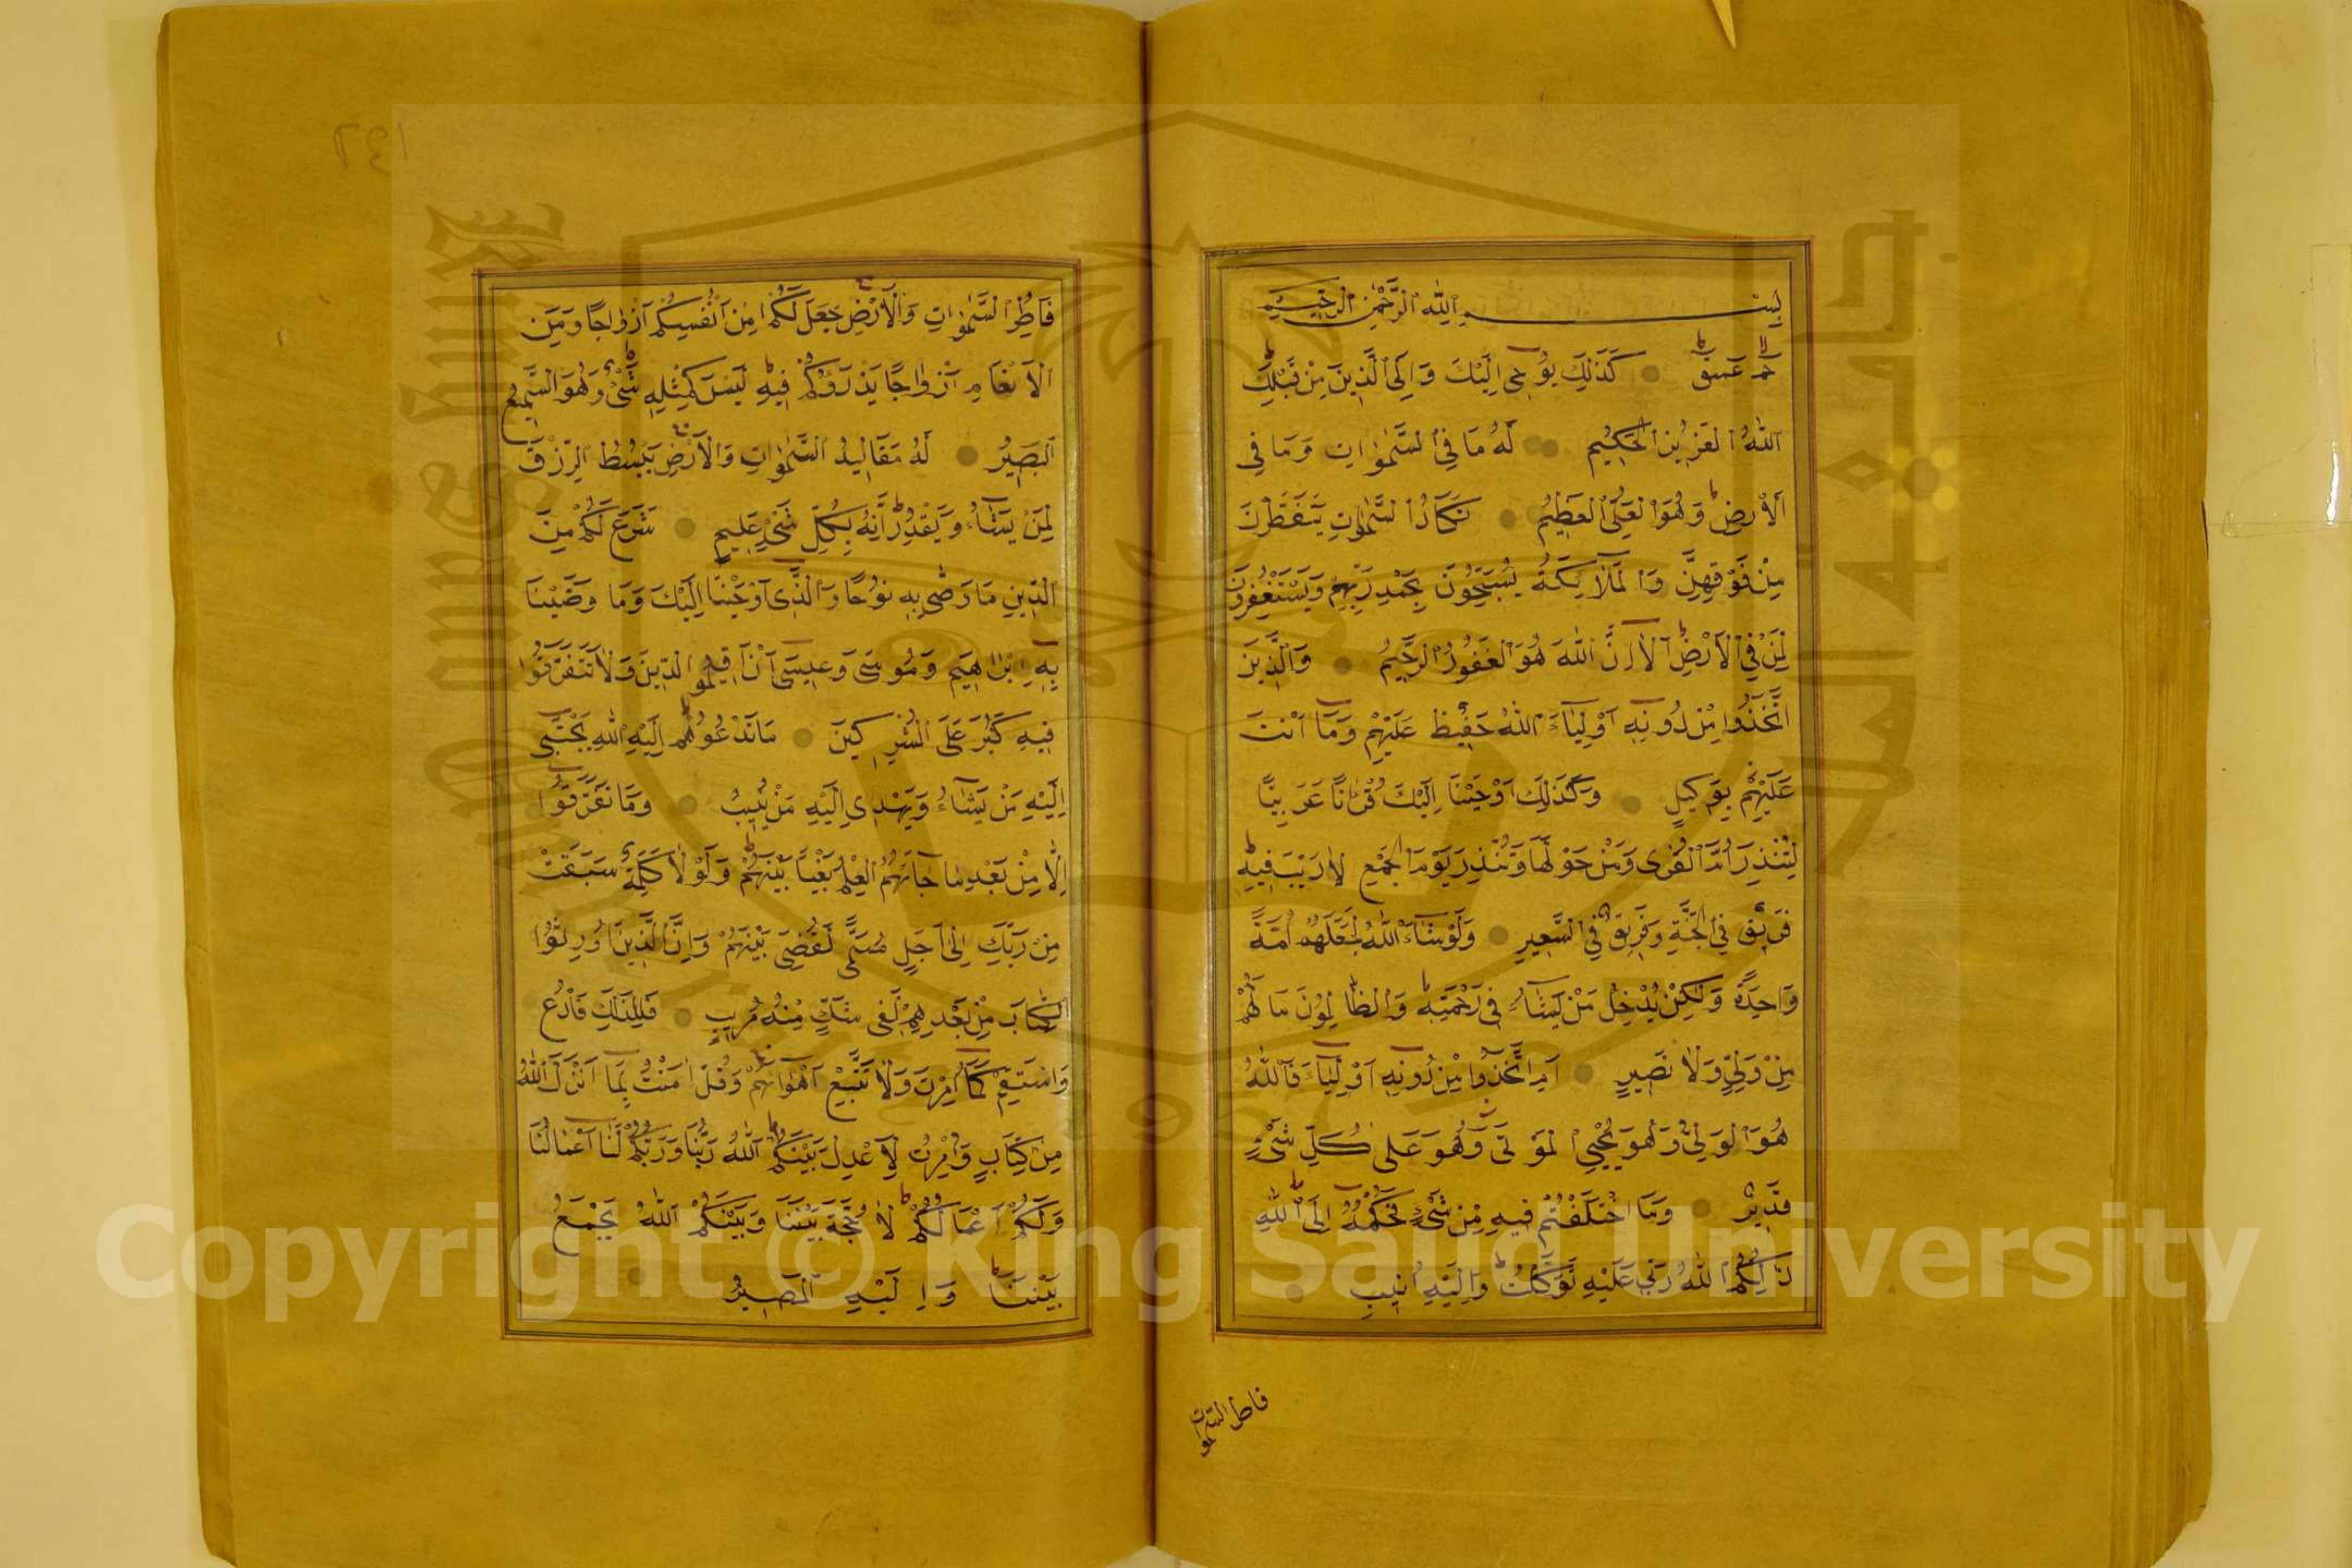 بِسْمِ اللّٰهِ الرَّحْمٰنِ الرَّحِيمِ
حٰمٓ عٓسٓقٓ كَذٰلِكَ يُوحِي إِلَيْكَ وَإِلَى الَّذِينَ مِنْ قَبْلِكَ
اللّٰهُ الْعَزِيزُ الْحَكِيمُ لَهُ مَا فِي السَّمٰوَاتِ وَمَا فِي
الْأَرْضِ وَهُوَ الْعَلِيُّ الْعَظِيمُ تَكَادُ السَّمٰوَاتِ يَتَفَطَّرْنَ
مِنْ فَوْقِهِنَّ وَالْمَلَائِكَةُ يُسَبِّحُونَ بِحَمْدِ رَبِّهِمْ وَيَسْتَغْفِرُونَ
لِمَنْ فِي الْأَرْضِ أَلَا إِنَّ اللّٰهَ هُوَ الْغَفُورُ الرَّحِيمُ وَالَّذِينَ
اتَّخَذُوا مِنْ دُونِهِ أَوْلِيَاءَ اللّٰهُ حَفِيظٌ عَلَيْهِمْ وَمَا أَنْتَ
عَلَيْهِمْ بِوَكِيلٍ وَكَذٰلِكَ أَوْحَيْنَا إِلَيْكَ قُرْاٰنًا عَرَبِيًّا
لِتُنْذِرَ أُمَّ الْقُرٰى وَمَنْ حَوْلَهَا وَتُنْذِرَ يَوْمَ الْجَمْعِ لَا رَيْبَ فِيهِ
فَرِيقٌ فِي الْجَنَّةِ وَفَرِيقٌ فِي السَّعِيرِ وَلَوْ شَاءَ اللّٰهُ لَجَعَلَهُمْ أُمَّةً
وَاحِدَةً وَلٰكِنْ يُدْخِلُ مَنْ يَشَاءُ فِي رَحْمَتِهِ وَالظَّالِمُونَ مَا لَهُمْ
مِنْ وَلِيٍّ وَلَا نَصِيرٍ أَمِ اتَّخَذُوا مِنْ دُونِهِ أَوْلِيَاءَ فَاللّٰهُ
هُوَ الْوَلِيُّ وَهُوَ يُحْيِي الْمَوْتَى وَهُوَ عَلٰى كُلِّ شَيْءٍ
قَدِيرٌ وَمَا اخْتَلَفْتُمْ فِيهِ مِنْ شَيْءٍ فَحُكْمُهُ إِلَى اللّٰهِ
ذٰلِكُمُ اللّٰهُ رَبِّي عَلَيْهِ تَوَكَّلْتُ وَإِلَيْهِ أُنِيبُ
فاطر السموات
فَاطِرُ السَّمٰوَاتِ وَالْأَرْضِ جَعَلَ لَكُمْ مِنْ أَنْفُسِكُمْ أَزْوَاجًا وَمِنَ
الْأَنْعَامِ أَزْوَاجًا يَذْرَؤُكُمْ فِيهِ لَيْسَ كَمِثْلِهِ شَيْءٌ وَهُوَ السَّمِيعُ
الْبَصِيرُ لَهُ مَقَالِيدُ السَّمٰوَاتِ وَالْأَرْضِ يَبْسُطُ الرِّزْقَ
لِمَنْ يَشَاءُ وَيَقْدِرُ إِنَّهُ بِكُلِّ شَيْءٍ عَلِيمٌ شَرَعَ لَكُمْ مِنَ
الدِّينِ مَا وَصّٰى بِهِ نُوحًا وَالَّذِي أَوْحَيْنَا إِلَيْكَ وَمَا وَصَّيْنَا
بِهِ إِبْرَاهِيمَ وَمُوسَى وَعِيسَى أَنْ أَقِيمُوا الدِّينَ وَلَا تَتَفَرَّقُوا
فِيهِ كَبُرَ عَلَى الْمُشْرِكِينَ مَا تَدْعُوهُمْ إِلَيْهِ اللّٰهُ يَجْتَبِي
إِلَيْهِ مَنْ يَشَاءُ وَيَهْدِي إِلَيْهِ مَنْ يُنِيبُ وَمَا تَفَرَّقُوا
إِلَّا مِنْ بَعْدِ مَا جَاءَهُمُ الْعِلْمُ بَغْيًا بَيْنَهُمْ وَلَوْلَا كَلِمَةٌ سَبَقَتْ
مِنْ رَبِّكَ إِلٰى أَجَلٍ مُسَمًّى لَقُضِيَ بَيْنَهُمْ وَإِنَّ الَّذِينَ أُورِثُوا
الْكِتَابَ مِنْ بَعْدِهِمْ لَفِي شَكٍّ مِنْهُ مُرِيبٍ فَلِذٰلِكَ فَادْعُ
وَاسْتَقِمْ كَمَا أُمِرْتَ وَلَا تَتَّبِعْ أَهْوَاءَهُمْ وَقُلْ اٰمَنْتُ بِمَا أَنْزَلَ اللّٰهُ
مِنْ كِتَابٍ وَأُمِرْتُ لِأَعْدِلَ بَيْنَكُمُ اللّٰهُ رَبُّنَا وَرَبُّكُمْ لَنَا أَعْمَالُنَا
وَلَكُمْ أَعْمَالُكُمْ لَا حُجَّةَ بَيْنَنَا وَبَيْنَكُمُ اللّٰهُ يَجْمَعُ
بَيْنَنَا وَإِلَيْهِ الْمَصِيرُ
Copyright © King Saud University